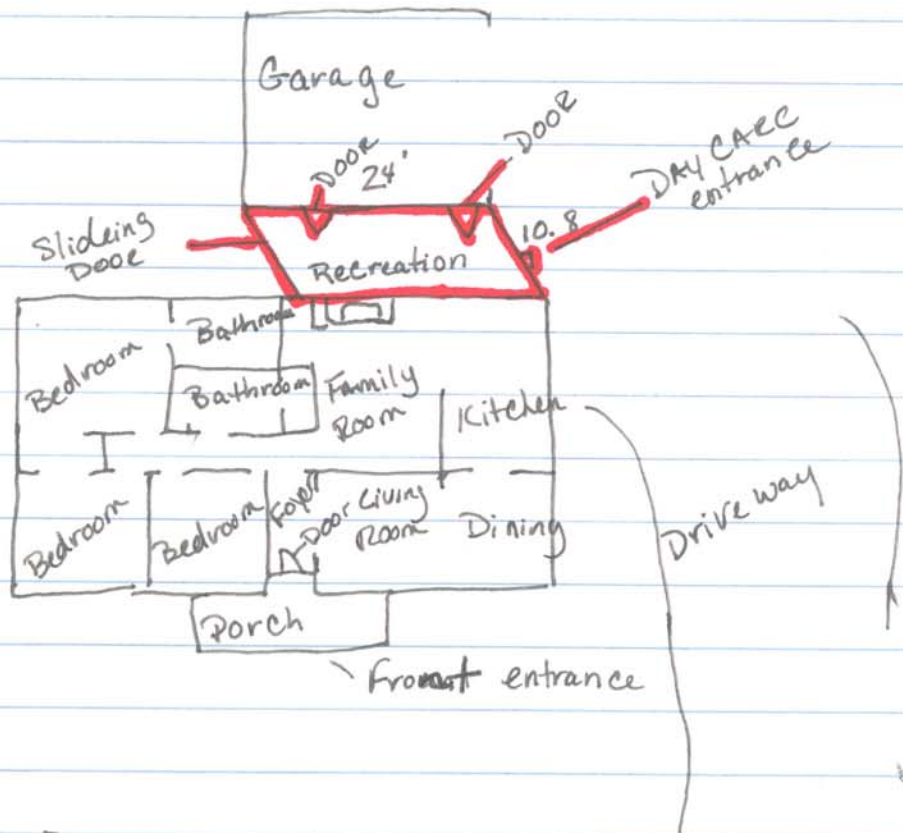 Garage
DOOR
DOOR
24'
DAY CARE
entrance
Slideing
Door
10.8
Recreation
Bedroom
Bathroom
Bathroom
Family
Room
Kitchen
Bedroom
Bedroom
Foyer
Door
Living
Room
Dining
Driveway
Porch
Front entrance